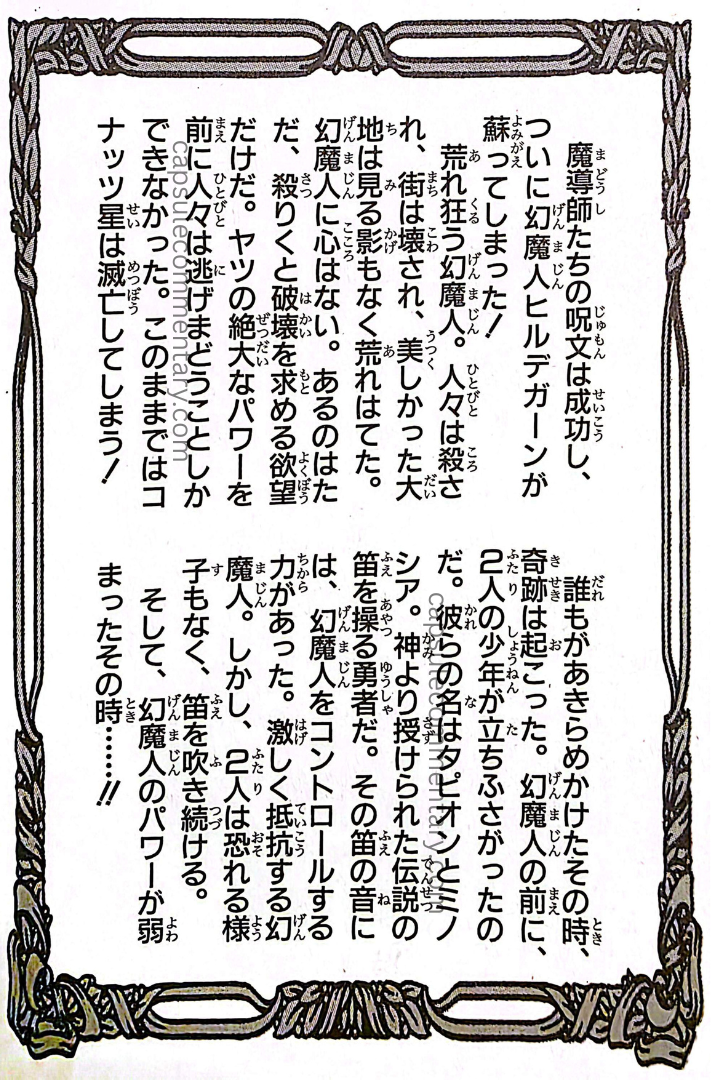 魔導師たちの呪文は成功し、
ついに幻魔人ヒルデガーンが
蘇ってしまった！
荒れ狂う幻魔人。人々は殺さ
れ、街は壊され、美しかった大
地は見る影もなく荒れはてた。
幻魔人に心はない。あるのはた
だ、殺りくと破壊を求める欲望
だけだ。ヤツの絶大なパワーを
前に人々は逃げまどうことしか
できなかった。このままではコ
ナッツ星は滅亡してしまう！
誰もがあきらめかけたその時、
奇跡は起こった。幻魔人の前に、
2人の少年が立ちふさがったの
だ。彼らの名はタピオンとミノ
シア。神より授けられた伝説の
笛を操る勇者だ。その笛の音に
は、幻魔人をコントロールする
力があった。激しく抵抗する幻
魔人。しかし、2人は恐れる様
子もなく、笛を吹き続ける。
そして、幻魔人のパワーが弱
まったその時……!!
capsulecommentary.com
capsulecommentary.com